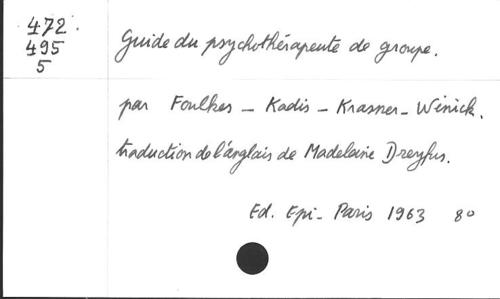 472.
495
5
Guide du psychothérapeute de groupe.
par Foulkes - Kadis - Krasner - Winick.
traduction de l'anglais de Madeleine Dreyfus.
Ed. Epi - Paris 1963 80